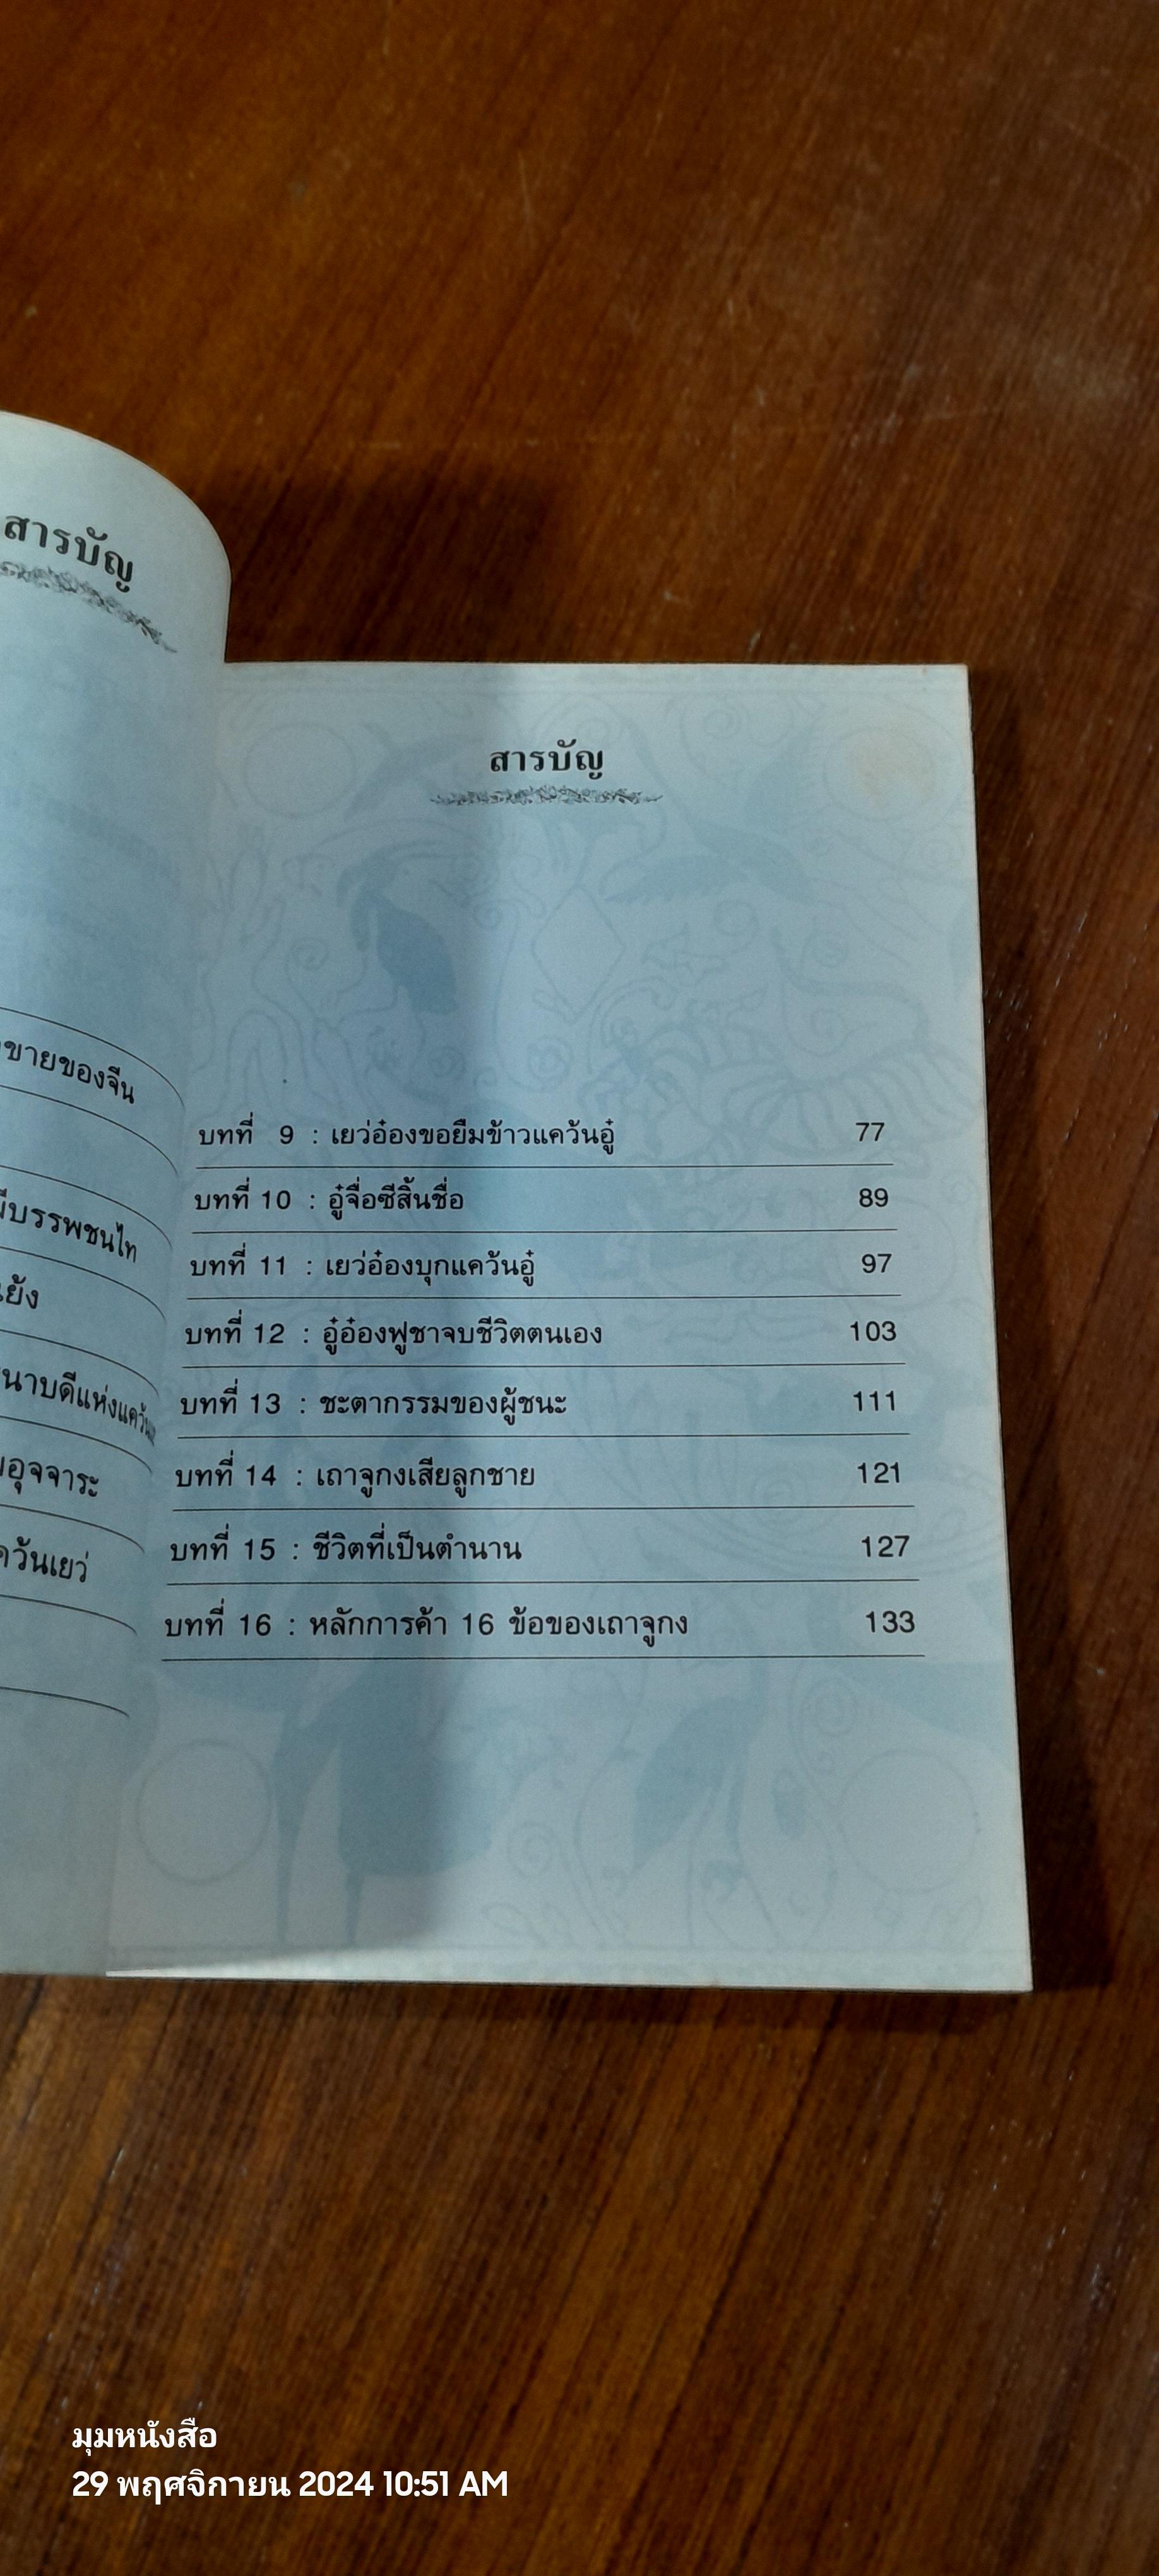 สารบัญ
ขายของจีน
บรรพชนไท
แย้ง
นาบดีแห่งแคว้น
อุจจาระ
คว้นเยว่
สารบัญ
บทที่ 9 : เยว่อ๋องขอยืมข้าวแคว้นอู๋ 77
บทที่ 10 : อู๋จื่อซีสิ้นชื่อ 89
บทที่ 11 : เยว่อ๋องบุกแคว้นอู๋ 97
บทที่ 12 : อู๋อ๋องฟูชาจบชีวิตตนเอง 103
บทที่ 13 : ชะตากรรมของผู้ชนะ 111
บทที่ 14 : เถาจูกงเสียลูกชาย 121
บทที่ 15 : ชีวิตที่เป็นตำนาน 127
บทที่ 16 : หลักการค้า 16 ข้อของเถาจูกง 133
มุมหนังสือ
29 พฤศจิกายน 2024 10:51 AM